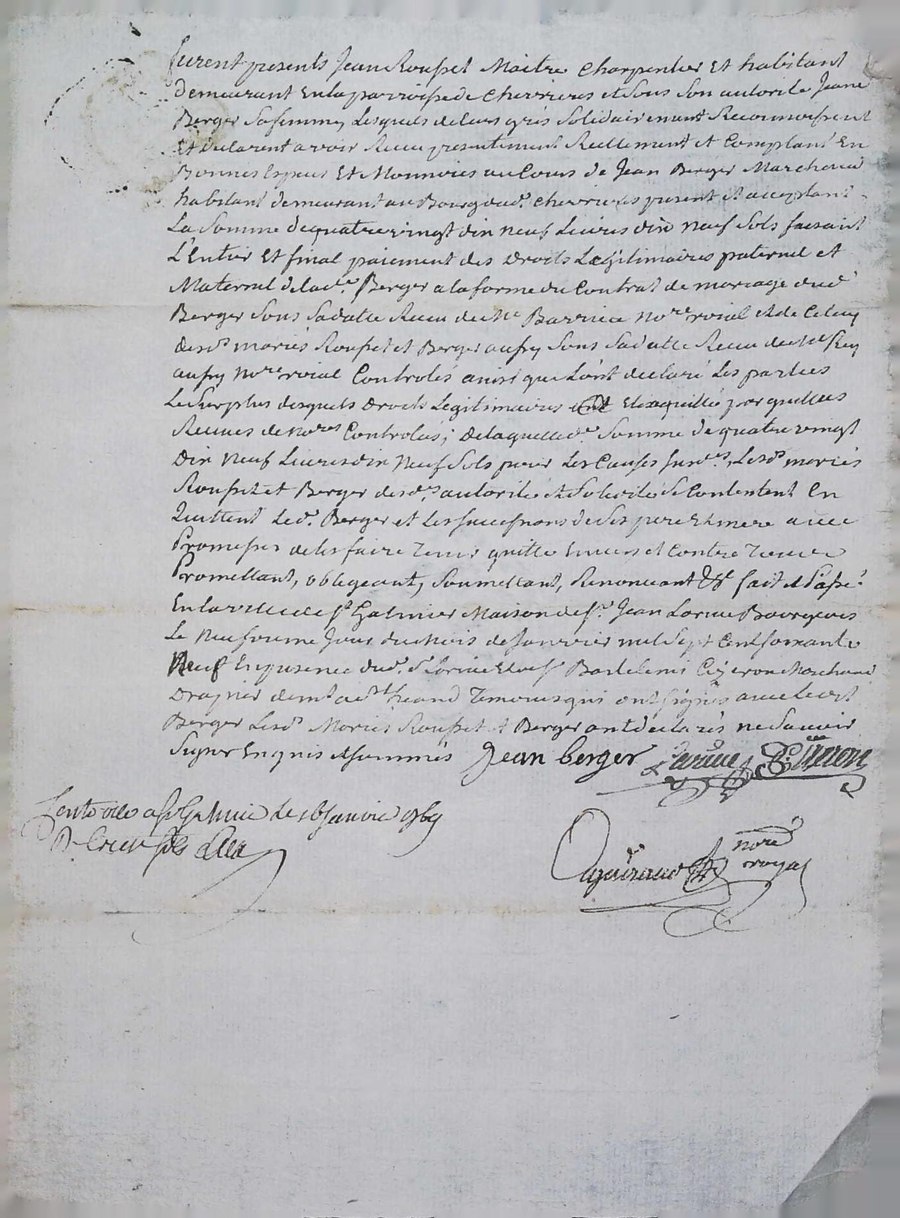 furent presents Jean Rousset Maitre Charpentier Et habitant
demeurant Enla parroisse de Cherrieres et Sous Son autorité Jeane
Berger Safemme, Lesquels deleurs grés Solidairement Reconnoissent
Et declarent avoir Receu presentement Reellement et Comptant En
Bonnes Espces Et Monnoies au Cours de Jean Berger Marchand
habitant demeurant au Bourg dud. Cherrieres present et acceptant
La Somme dequatre vingt dix neuf Livres dix neuf Sols faisant
L'Entier Et final paiement des Droits Legitimaires paternel et
Maternel de lad.e Berger a la forme du Contrat de mariage dud.
Berger Sous Sadatte Receu de Me Barrice nore roial et de Celuy
desd. mariés Rousset et Berger aussy Sous Sadatte Receu de Me
aussy Nore roial Controlés ainsi que L'ont declaré Les parties
Le Surplus desquels Droits Legitimaires Etant quittances
Receues de Nores Controlées; de laquelle de. Somme de quatre vingt
Dix Neuf Livres dix Neuf Sols pour Les Causes Susd.es, Lesd. mariés
Rousset et Berger desd.es autorité et Solidité Se Contentent En
Quittent Led. Berger et Les Successions de Ses pere Et mere avec
Promesses de les faire Tenir quitte Envers et Contre Tous
Promettant, obligeant, Soumettant, Renonceant &c fait et Passé
En la ville de St Galmier Maison de Sr. Jean Lorme Bourgeois
Le neufvieme Jour du Mois de Janvier mil Sept Cent Soixante
Neuf En presence dud. Sr Lorme Et de Sr Bartelemi Marchand
Drapier Temoins qui ont signés avec Led.
Berger Lesd. Mariés Rousset et Berger ont declarés ne Savoir
Signer Enquis et Sommés Jean berger
Controllé a St Galmier le 16 Janvier 1769
nore
royal